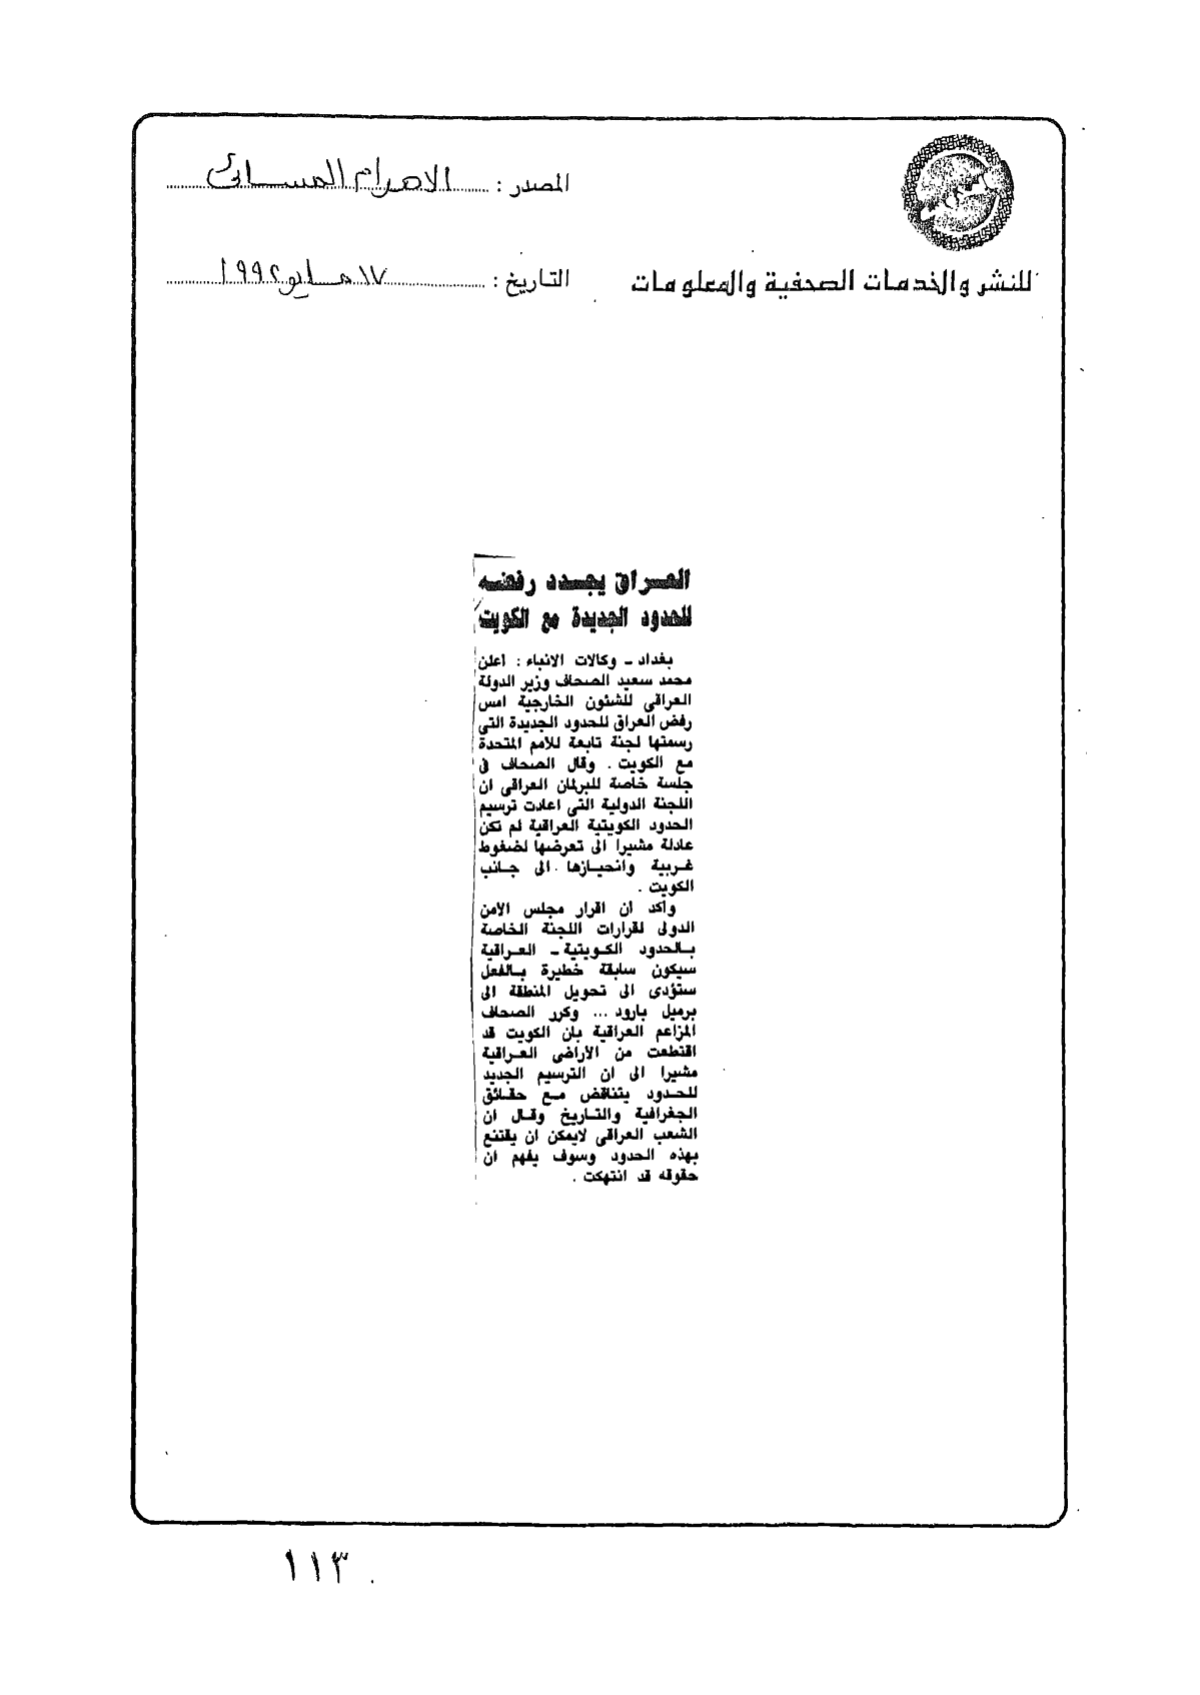 المصدر : الاهرام المسائى
للنشر والخدمات الصحفية والمعلومات
التاريخ : ١٧ مايو ١٩٩٢
العراق يجدد رفضه
للحدود الجديدة مع الكويت
بغداد ـ وكالات الانباء : اعلن
محمد سعيد الصحاف وزير الدولة
العراقى للشئون الخارجية امس
رفض العراق للحدود الجديدة التى
رسمتها لجنة تابعة للأمم المتحدة
مع الكويت . وقال الصحاف فى
جلسة خاصة للبرلمان العراقى ان
اللجنة الدولية التى اعادت ترسيم
الحدود الكويتية العراقية لم تكن
عادلة مشيرا الى تعرضها لضغوط
غربية وانحيازها الى جانب
الكويت .
واكد ان اقرار مجلس الامن
الدولى لقرارات اللجنة الخاصة
بالحدود الكويتية ـ العراقية
سيكون سابقة خطيرة بالفعل
ستؤدى الى تحويل المنطقة الى
برميل بارود ... وكرر الصحاف
المزاعم العراقية بان الكويت قد
اقتطعت من الأراضى العراقية
مشيرا الى ان الترسيم الجديد
للحدود يتناقض مع حقائق
الجغرافية والتاريخ وقال ان
الشعب العراقى لايمكن ان يقتنع
بهذه الحدود وسوف يفهم ان
حقوقه قد انتهكت .
١١٣